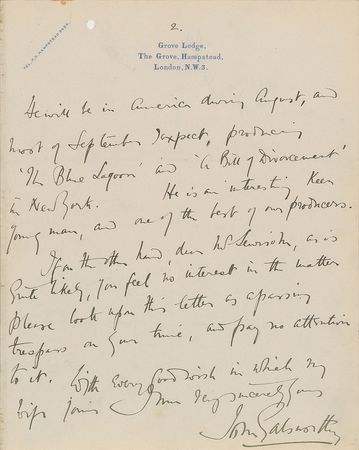 2.
TEL. P.O. HAMPSTEAD
Grove Lodge,
The Grove, Hampstead,
London, N.W.3.
He will be in America during August, and
most of September I expect, producing
'The Blue Lagoon' and 'A Bill of Divorcement'
in New York. He is an interesting, keen
young man, and one of the best of our producers.
If on the other hand, dear Mr Lewisohn, as is
quite likely, you feel no interest in the matter
please look upon this letter as a passing
trespass on your time, and pay no attention
to it. With every good wish in which my
wife joins I am very sincerely yours
John Galsworthy